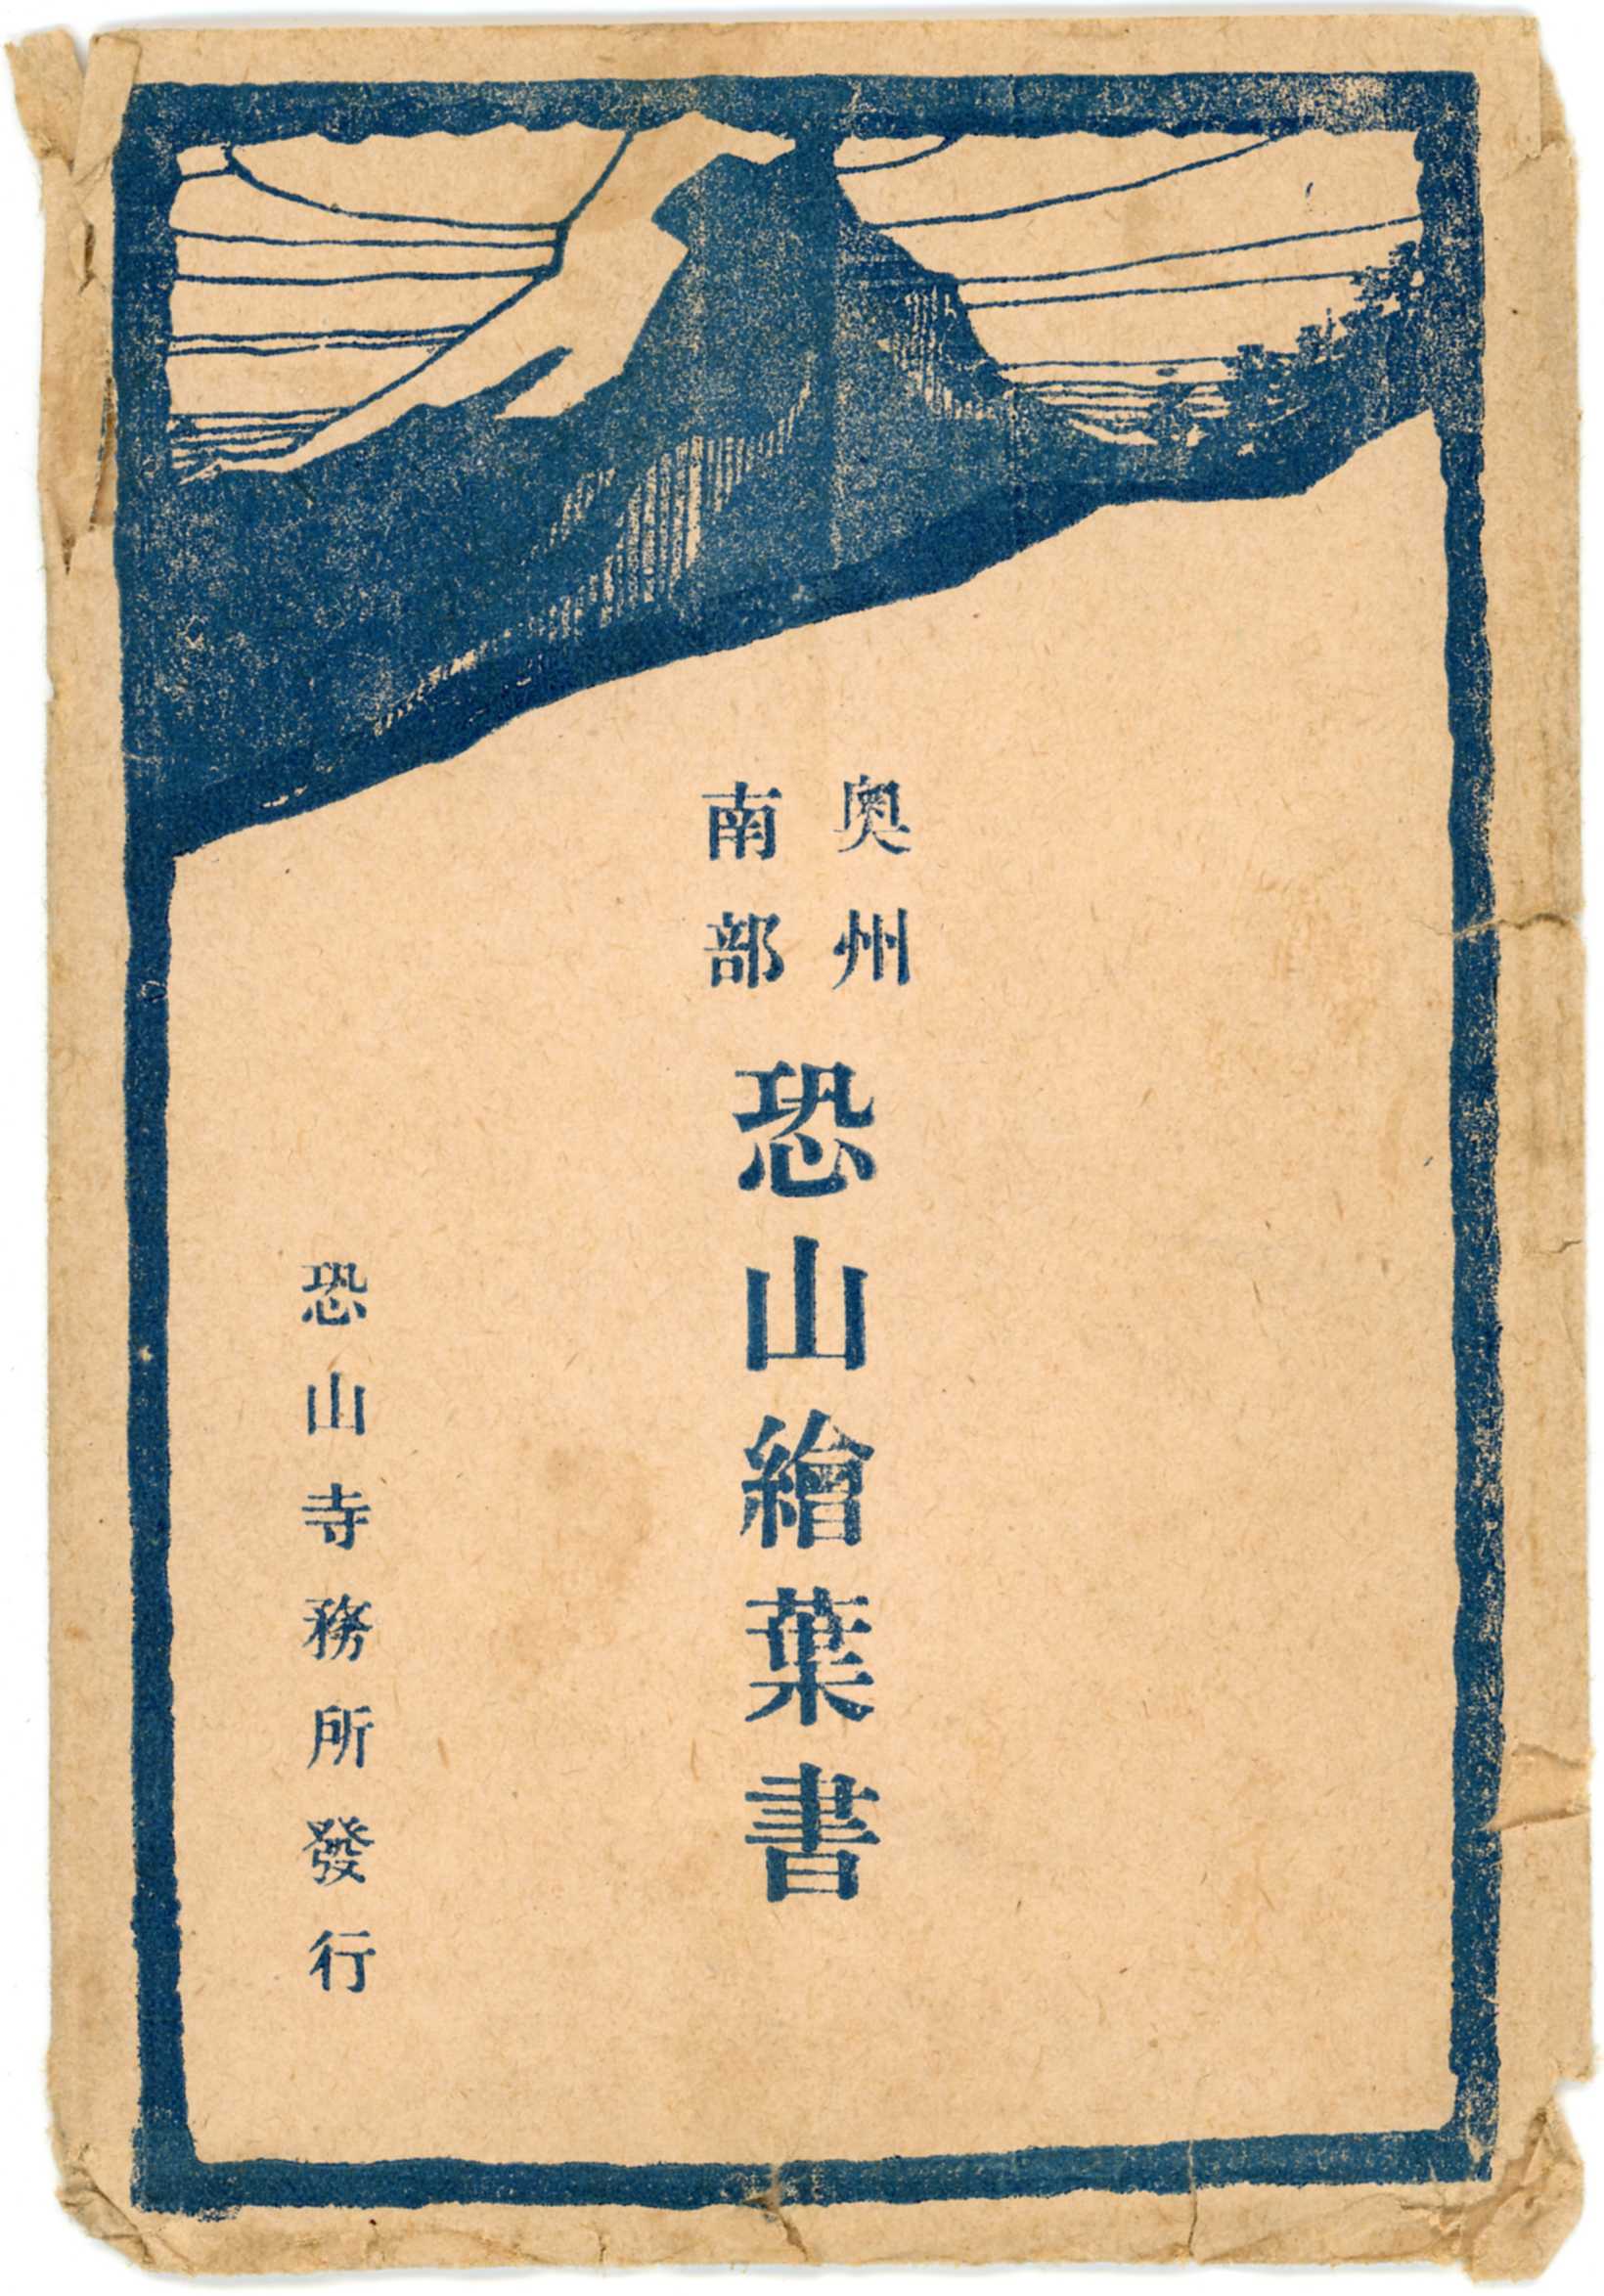 奥州
南部
恐山繪葉書
恐山寺務所發行